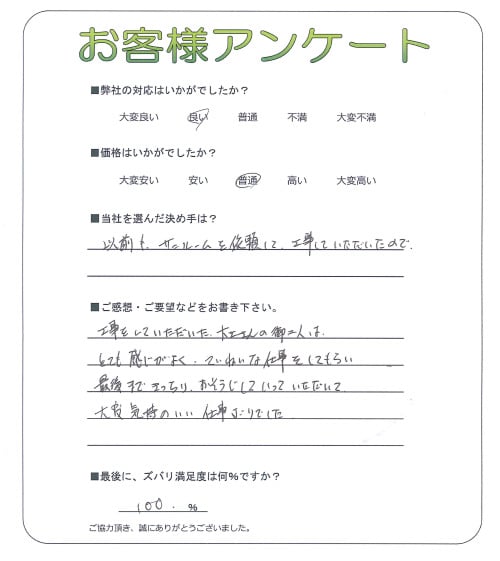 お客様アンケート
■弊社の対応はいかがでしたか？
大変良い 良い 普通 不満 大変不満
■価格はいかがでしたか？
大変安い 安い 普通 高い 大変高い
■当社を選んだ決め手は？
以前も、サンルームを依頼して、工事していただいたので.
■ご感想・ご要望などをお書き下さい。
工事をしていただいた、大工さんの御二人は、
とても感じがよく、ていねいな仕事をしてもらい
最後まできっちり、おそうじしていっていただいて
大変気持のいい仕事ぶりでした
■最後に、ズバリ満足度は何%ですか？
100. %
ご協力頂き、誠にありがとうございました。